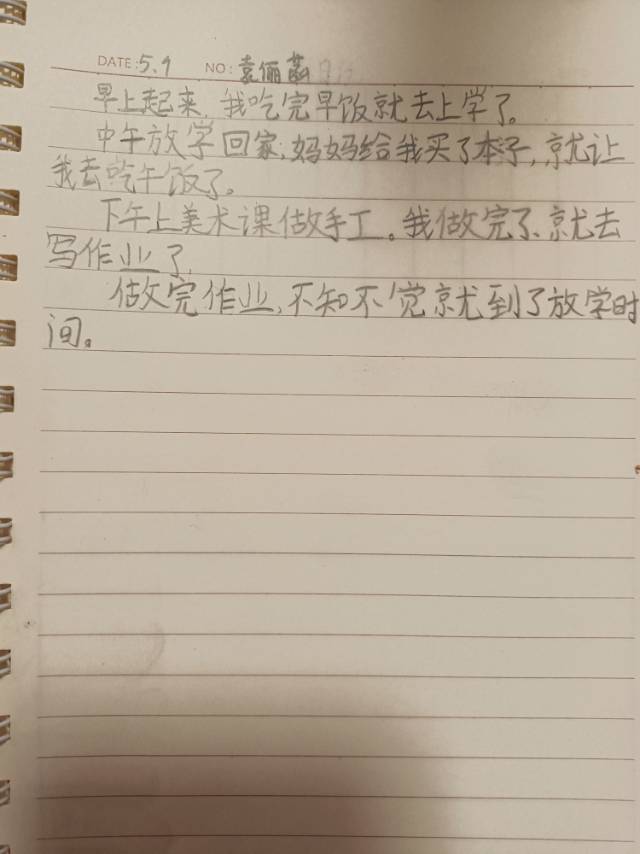 DATE:5.9 NO:袁俪菡
早上起来,我吃完早饭就去上学了。
中午放学回家,妈妈给我买了本子,就让
我去吃午饭了。
下午上美术课做手工。我做完了、就去
写作业了,
做完作业,不知不觉就到了放学时
间。